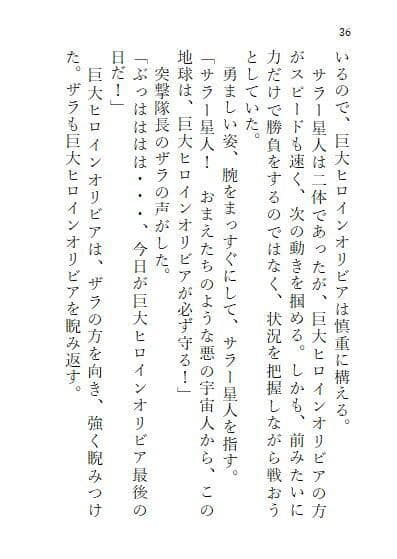 36
いるので、巨大ヒロインオリビアは慎重に構える。
　サラー星人は二体であったが、巨大ヒロインオリビアの方
がスピードも速く、次の動きを掴める。しかも、前みたいに
力だけで勝負をするのではなく、状況を把握しながら戦おう
としていた。
　勇ましい姿、腕をまっすぐにして、サラー星人を指す。
「サラー星人！　おまえたちのような悪の宇宙人から、この
地球は、巨大ヒロインオリビアが必ず守る！」
　突撃隊長のザラの声がした。
「ぶっはははは・・・、今日が巨大ヒロインオリビア最後の
日だ！」
　巨大ヒロインオリビアは、ザラの方を向き、強く睨みつけ
た。ザラも巨大ヒロインオリビアを睨み返す。